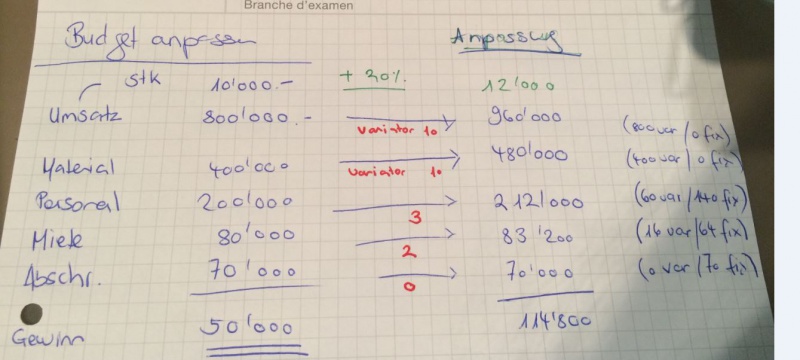 Branche d'examen
Budget anpassen Anpassung
Stk 10'000.- + 20%. 12'000
Umsatz 800'000.- Variator 10 960'000 (800 var / 0 fix)
Material 400'000 Variator 10 480'000 (400 var / 0 fix)
Personal 200'000 3 212'000 (60 var / 140 fix)
Miete 80'000 2 83'200 (16 var / 64 fix)
Abschr. 70'000 0 70'000 (0 var / 70 fix)
Gewinn 50'000 114'800